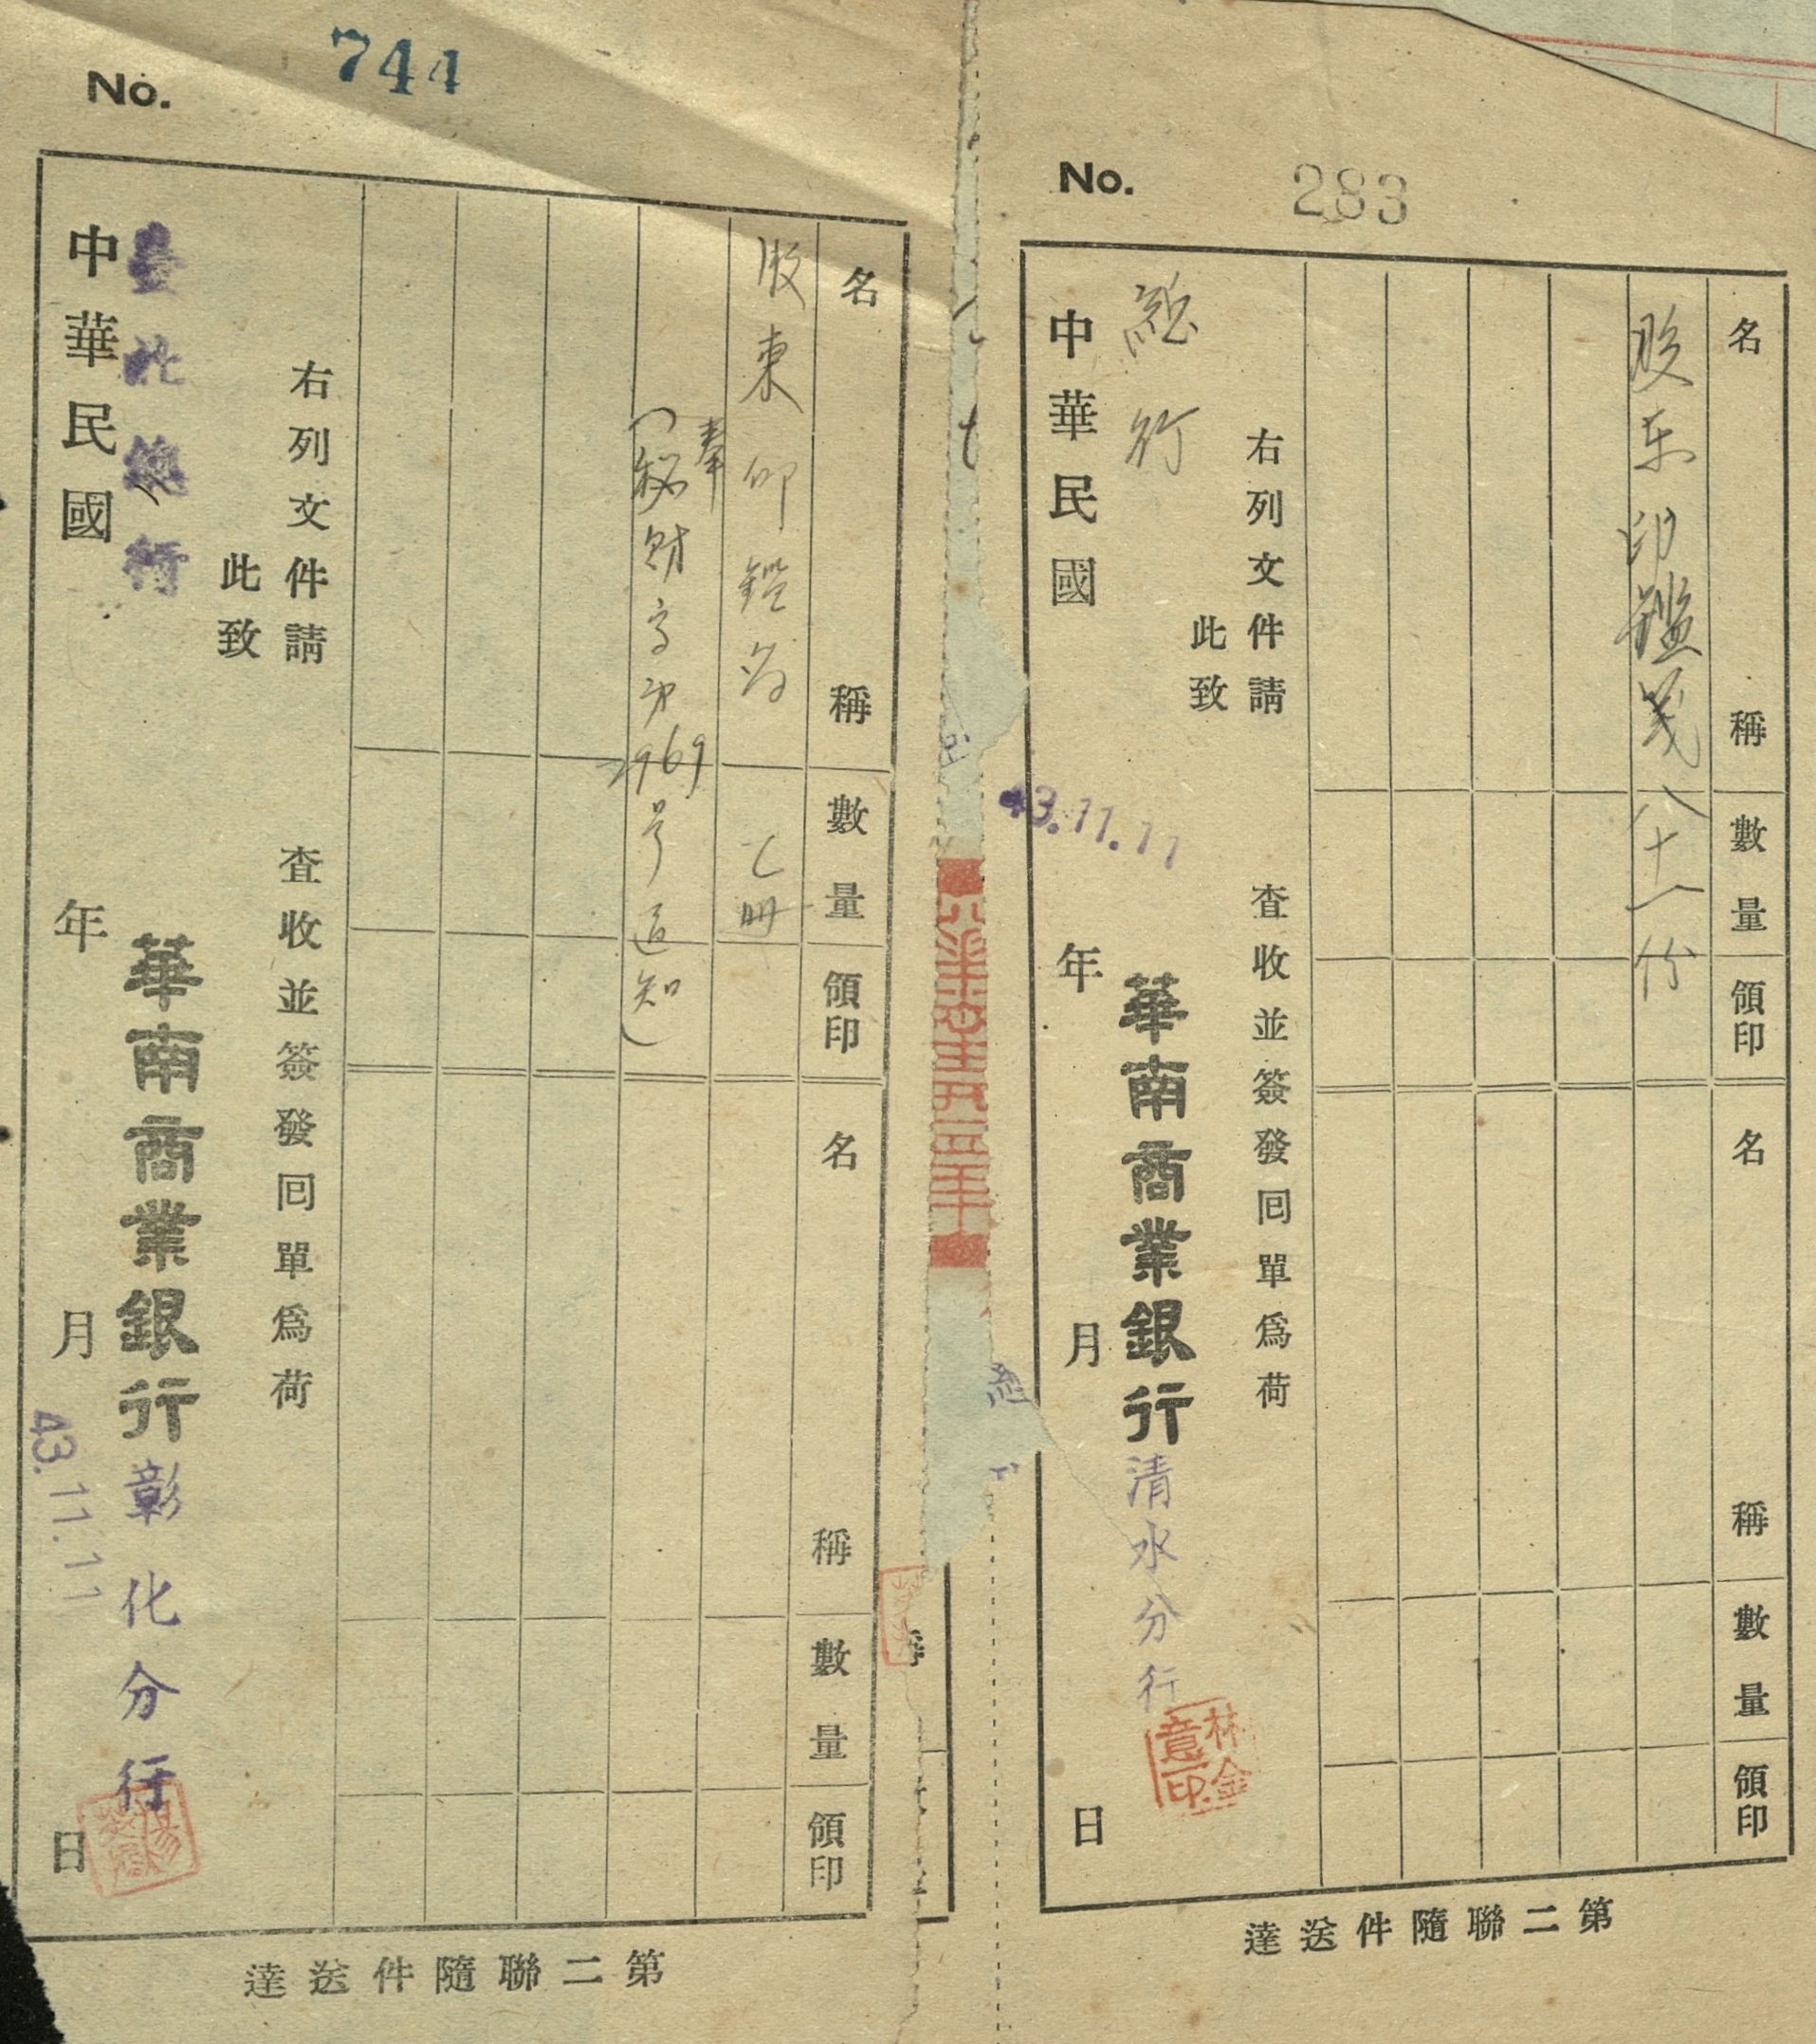 No. 283
名稱 數量 領印 名稱 數量 領印
股东印鑑箋 八十一份
右列文件請查收並簽發回單爲荷
此致
總行
華南商業銀行清水分行
林金意印
中華民國 年 月 日
43.11.11
第二聯隨件送達
No. 744
名稱 數量 領印 名稱 數量 領印
股東印鑑 乙册
奉
(秘財字第2969号通知)
右列文件請查收並簽發回單爲荷
此致
臺北總行
華南商業銀行彰化分行
中華民國 年 月 日
43.11.11
第二聯隨件送達